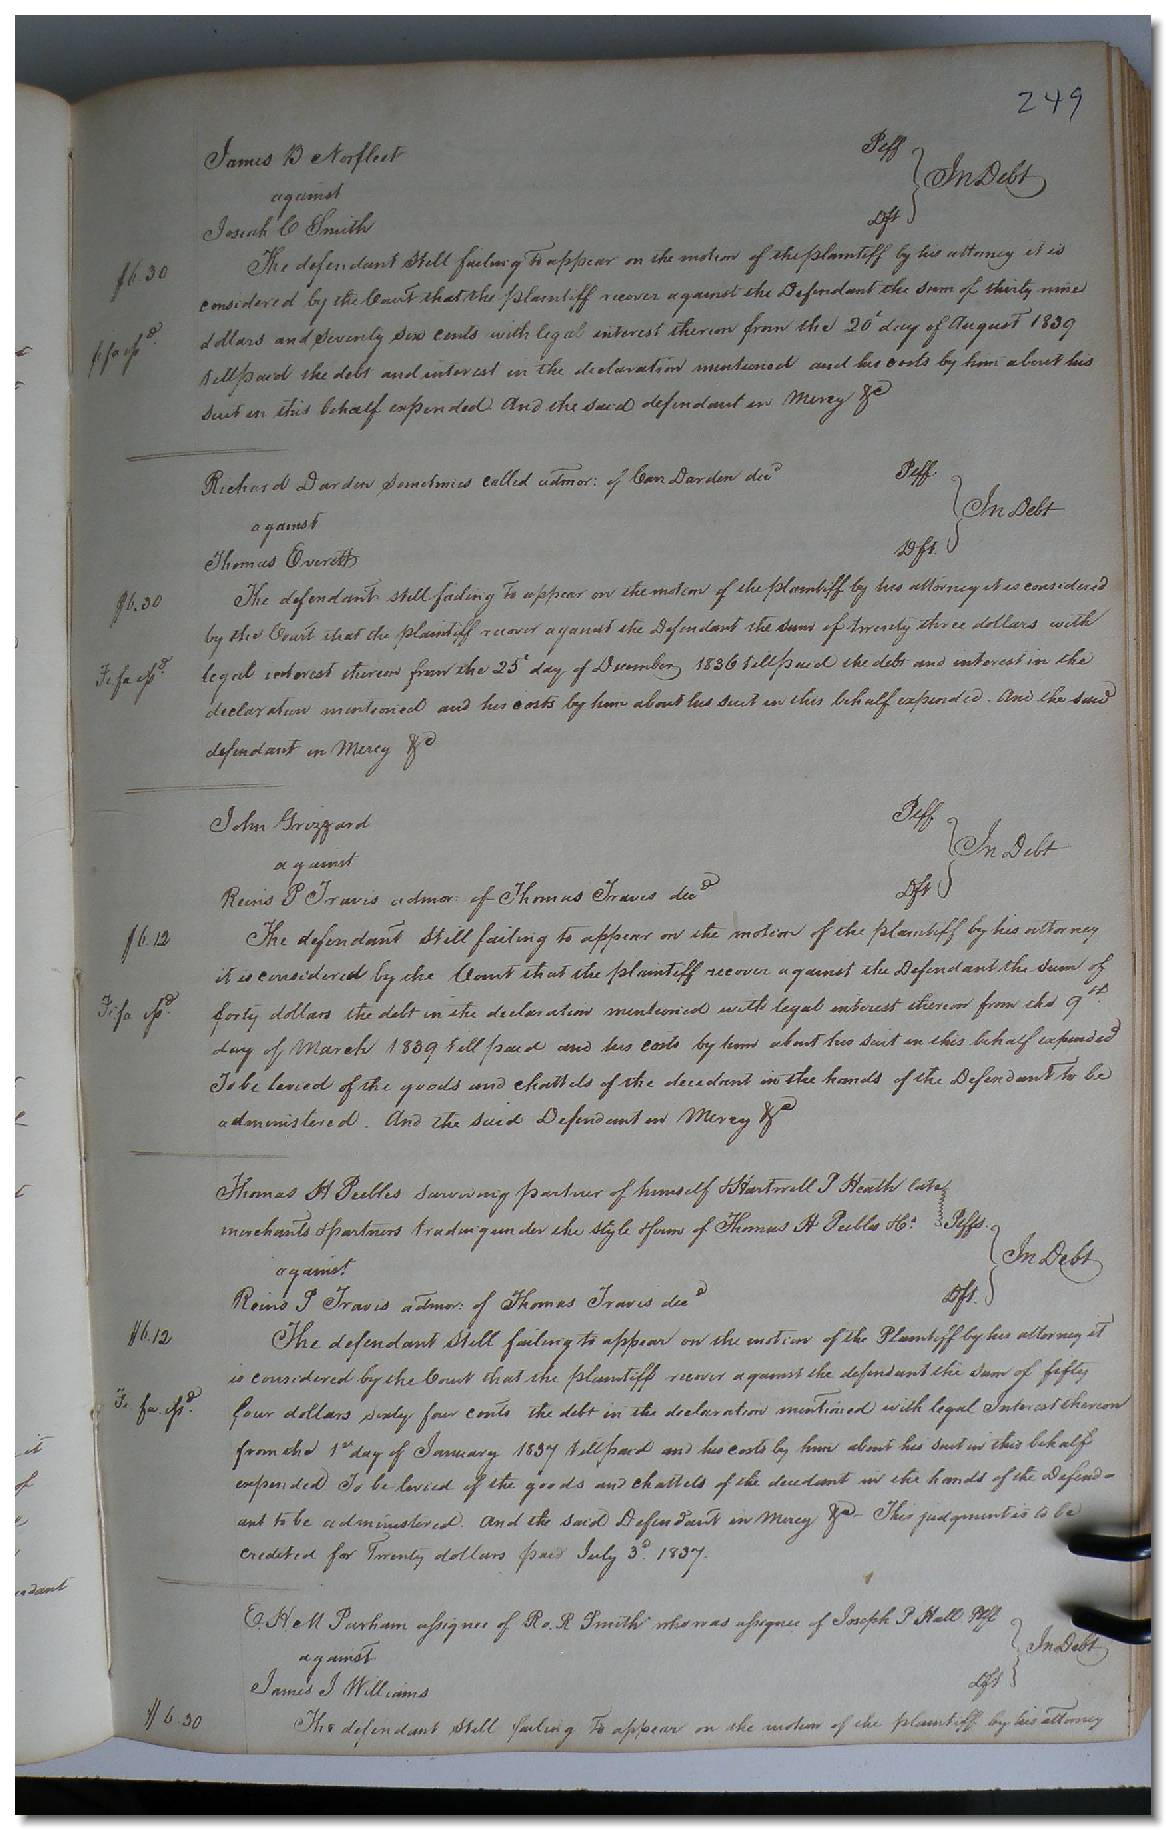 249
James B Norfleet Peff
against In Debt
Josiah C Smith Dft
$6.30 The defendant still failing to appear on the motion of the plaintiff by his attorney it is
considered by the Court that the plaintiff recover against the Defendant the sum of thirty nine
fi fa issd. dollars and seventy six cents with legal interest thereon from the 20t day of August 1839
till paid the debt and interest in the declaration mentioned and his costs by him about his
suit in this behalf expended. And the said defendant in Mercy &c
Richard Darden sometimes called admor: of Darden decd Peff.
against In Debt
Thomas Everett Dft.
$6.30 The defendant still failing to appear on the motion of the plaintiff by his attorney it is considered
by the Court that the plaintiff recover against the Defendant the sum of twenty three dollars with
Fi. fa issd. legal interest thereon from the 25t day of December 1836 till paid the debt and interest in the
declaration mentioned and his costs by him about his suit in this behalf expended. And the said
defendant in Mercy &c
John Grizzard Peff.
against In Debt
Reins P Travis admor: of Thomas Travis decd Dft
$6.12 The defendant still failing to appear on the motion of the plaintiff by his attorney
it is considered by the Court that the plaintiff recover against the Defendant the sum of
Fi. fa issd. forty dollars the debt in the declaration mentioned with legal interest thereon from the 9th.
day of March 1839 till paid and his costs by him about his suit in this behalf expended
To be levied of the goods and chattels of the decedant in the hands of the Defendant to be
administered. And the said Defendant in Mercy &c
Thomas H Peebles surviving partner of himself & Hartwell P Heath late
merchants & partners trading under the style & firm of Thomas H Peebles & Co. Peffs.
against In Debt
Reins P Travis admor: of Thomas Travis decd Dft.
$6.12 The defendant still failing to appear on the motion of the Plaintiff by his attorney it
is considered by the Court that the plaintiff recover against the defendant the sum of fifty
Fi. fa. issd. four dollars sixty four cents the debt in the declaration mentioned with legal Interest thereon
from the 1st day of January 1837 till paid and his costs by him about his suit in this behalf
expended To be levied of the goods and chattels of the decedant in the hands of the Defend-
ant to be administered. And the said Defendant in Mercy &c - This judgment is to be
credited for Twenty dollars paid July 3d. 1837.
E. H & M Parham assignee of Ro. R Smith who was assignee of Joseph P Hall Plff
against In Debt
James J Williams Dft
$6.30 The defendant still failing to appear on the motion of the plaintiff by his attorney